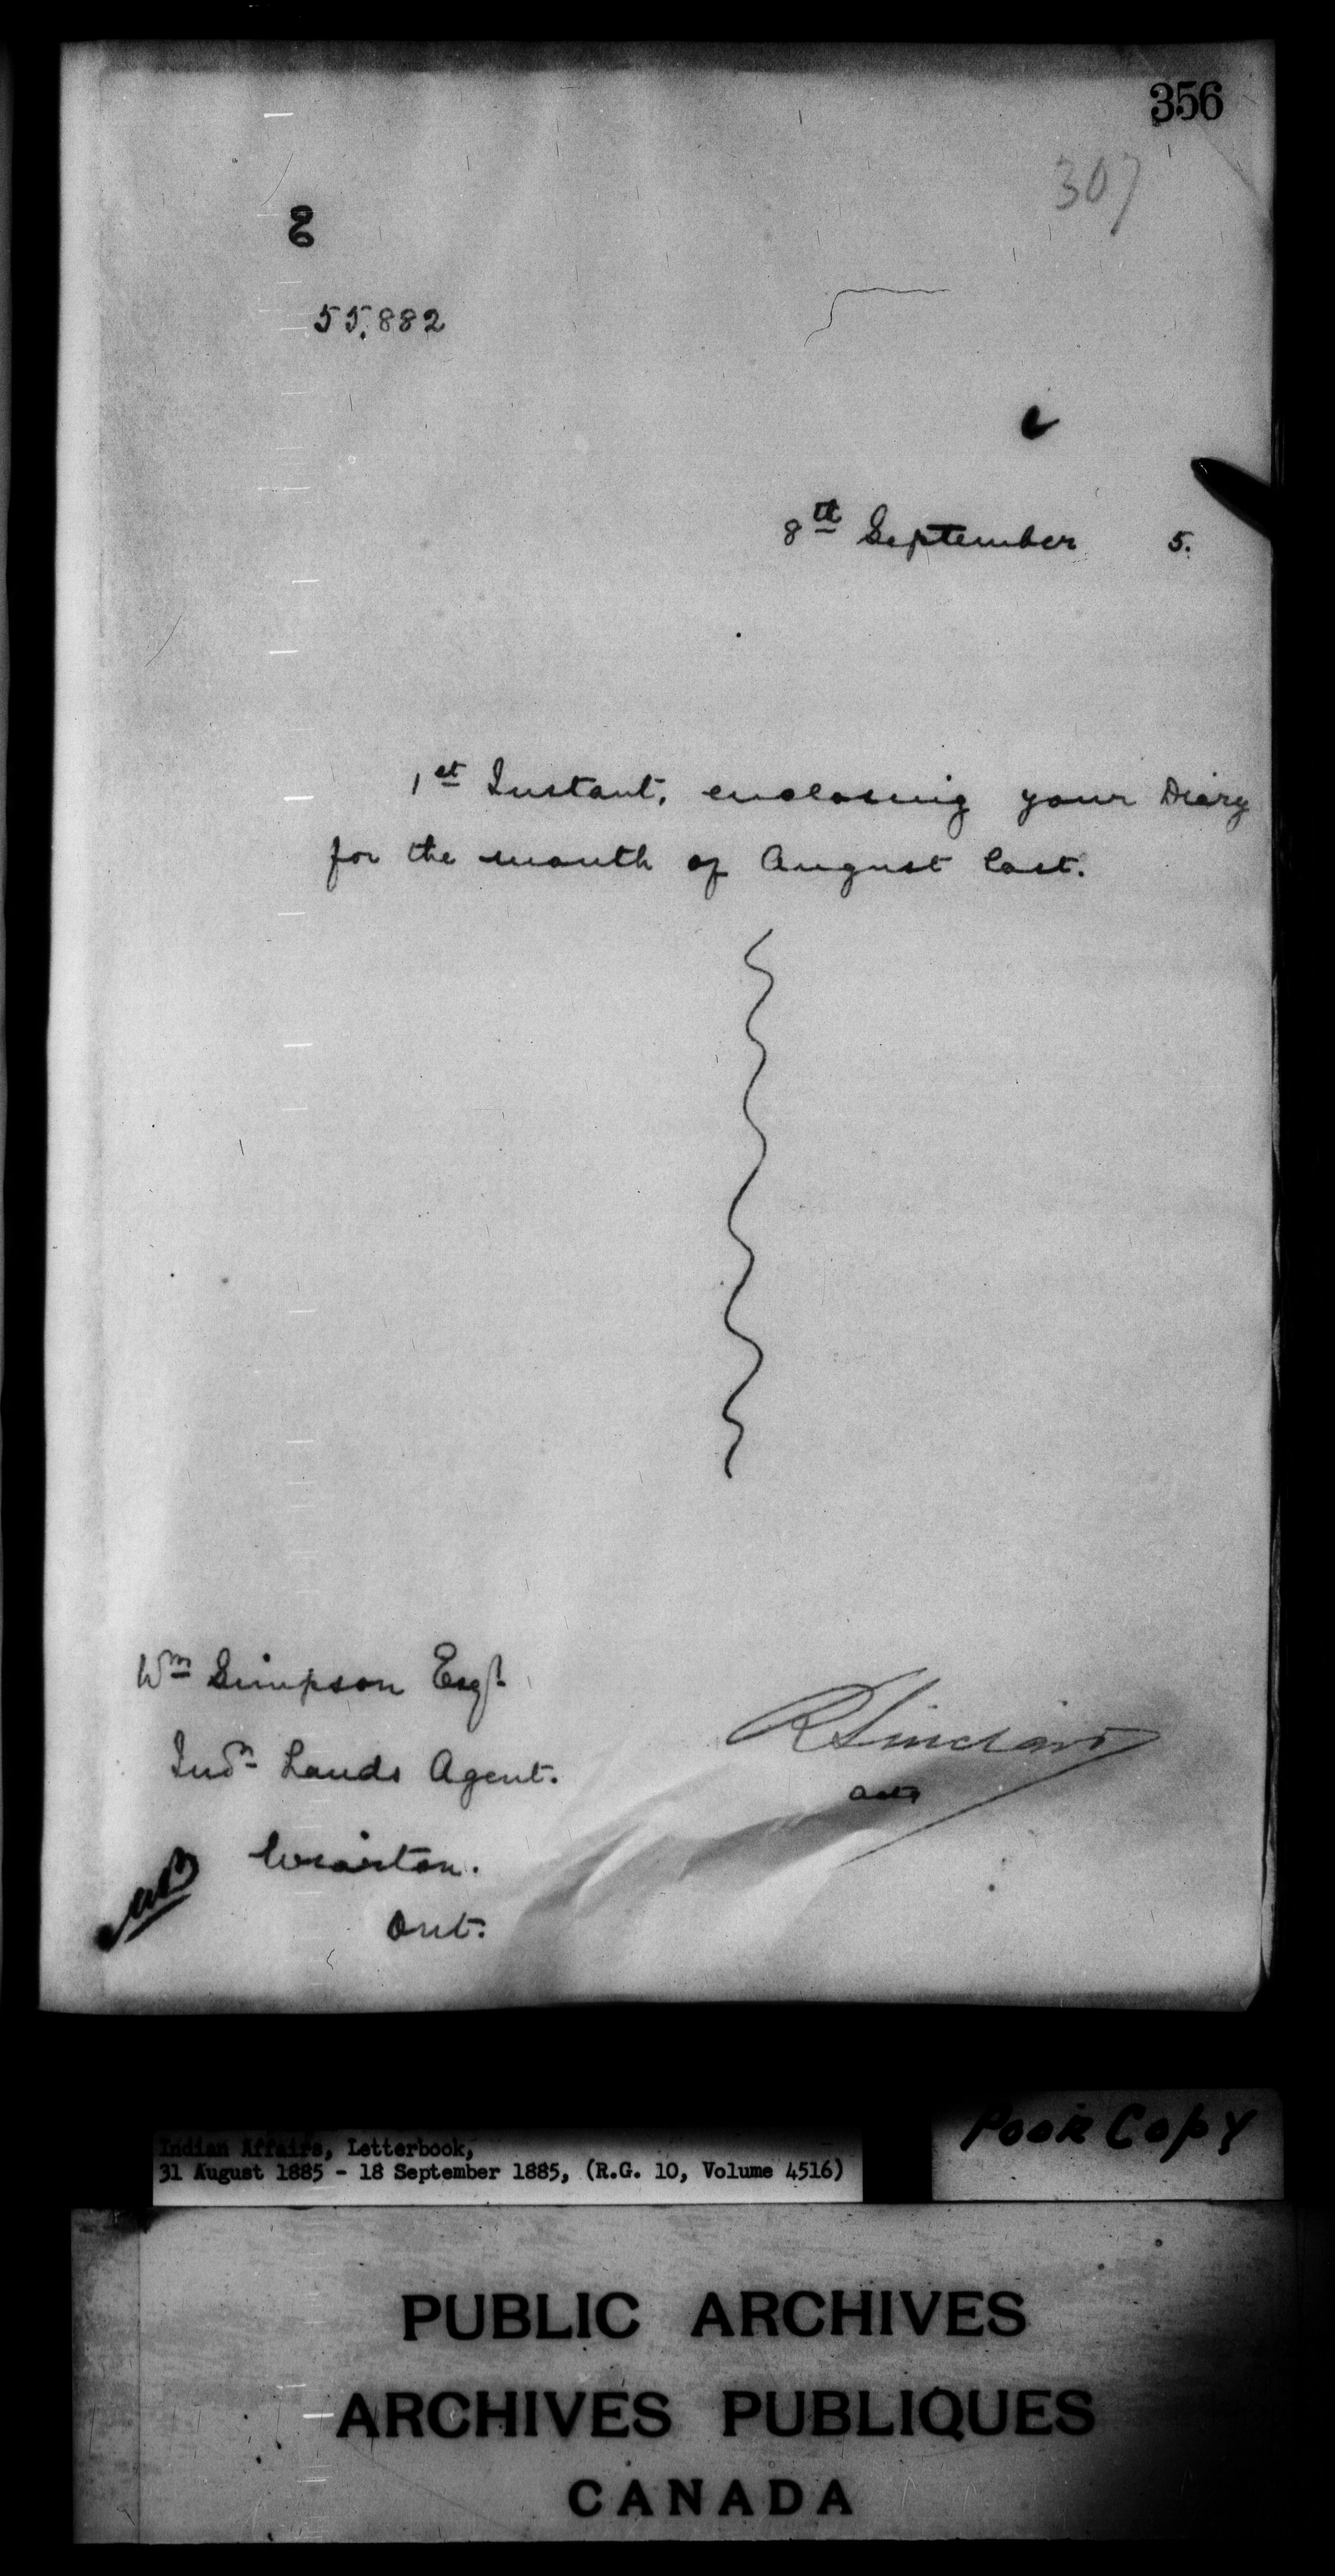 356
307
55,882
8th September 5.
1st Instant, enclosing your Diary
for the month of August last.
Wm Simpson Esqr
Indn Lands Agent.
Wiarton.
Ont.
R Sinclair
Indian Affairs, Letterbook,
31 August 1885 - 18 September 1885, (R.G. 10, Volume 4516)
Poor Copy
PUBLIC ARCHIVES
ARCHIVES PUBLIQUES
CANADA